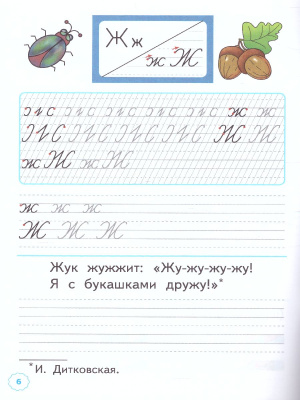 Ж ж
ж Ж
ж ж
Ж Ж
ж Ж ж Ж
ж ж ж
Ж Ж Ж
Жук жужжит: «Жу-жу-жу-жу!
Я с букашками дружу!»*
*И. Дитковская.
6